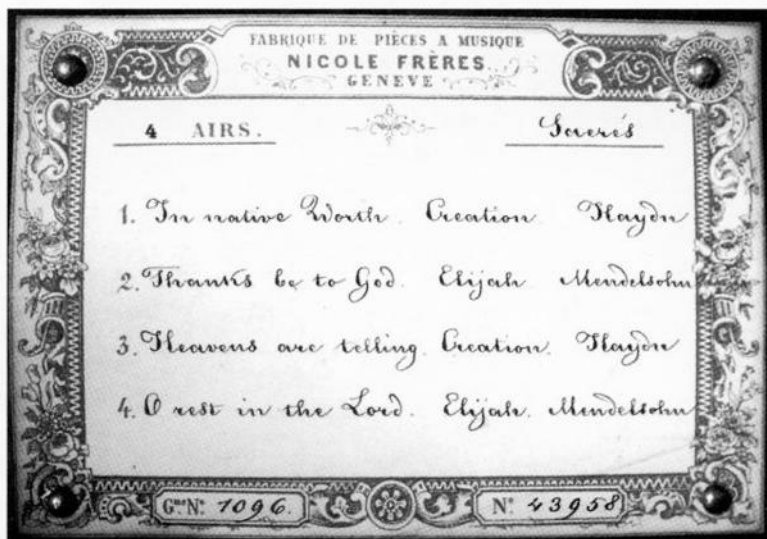 FABRIQUE DE PIÈCES A MUSIQUE
NICOLE FRÈRES
GENEVE
4 AIRS. Sacrés
1. In native Worth. Creation. Haydn
2. Thanks be to God. Elijah. Mendelsohn
3. Heavens are telling. Creation. Haydn
4. O rest in the Lord. Elijah. Mendelsohn
Gme No. 1096. No. 43958